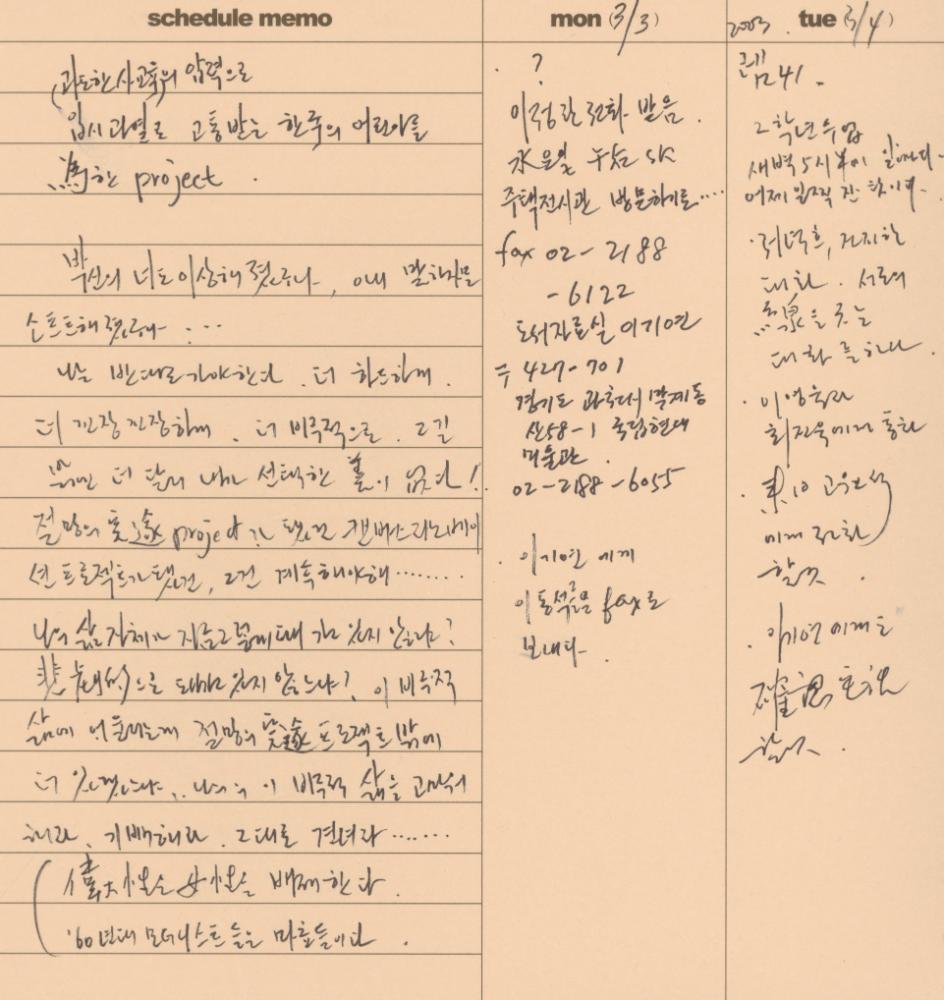 schedule memo
과도한 사교육의 압력으로
입시과열로 고통받는 한국의 어린이를
爲한 project .
너도 이상해졌구나, 말하자면
소프트해졌구나 ...
나는 반대로 가야한다 . 더 하드하게 .
더 긴장 긴장하며 . 더 비극적으로 . 그길
밖엔 더 달리 내가 선택한 길이 없다!
절망의 project가 됐건 캔버스리노베이
션 프로젝트가 됐건, 그건 계속해야해 ........
나의 삶 자체가 지금 그렇게 돼 가고 있지 않는가?
悲劇的으로 되어가고 있지 않느냐? 이 비극적
삶에 어울리는게 절망의 프로젝트 밖에
더 있겠느냐. 나의 이 비극적 삶을 고마워
해라. 기뻐해라. 그대로 견뎌라 .......
偉大性은 女性을 배제한다.
'60년대 모더니스트들은 마초들이다 .
mon (3/3)
. ?
전화 받음 .
水요일
주택전시관 방문하기로 ....
fax 02-2188
-6122
도서자료실 이기연
우 427-701
경기도 과천시 막계동
산58-1 국립현대
미술관 .
02-2188-6055
. 이기연 에게
이동석글을 fax로
보내다 .
2003 . tue (3/4)
41 .
2학년수업
새벽 5시 일어나다.
어제 일찍 잔 탓이다.
. 저녁후, 진지한
대화 . 서로의
을 주는
대화를 하다 .
. 이영욱과
최진욱에게 통화
.
에게 전화
할것 .
. 이기연에게도
確認電話
할것 .